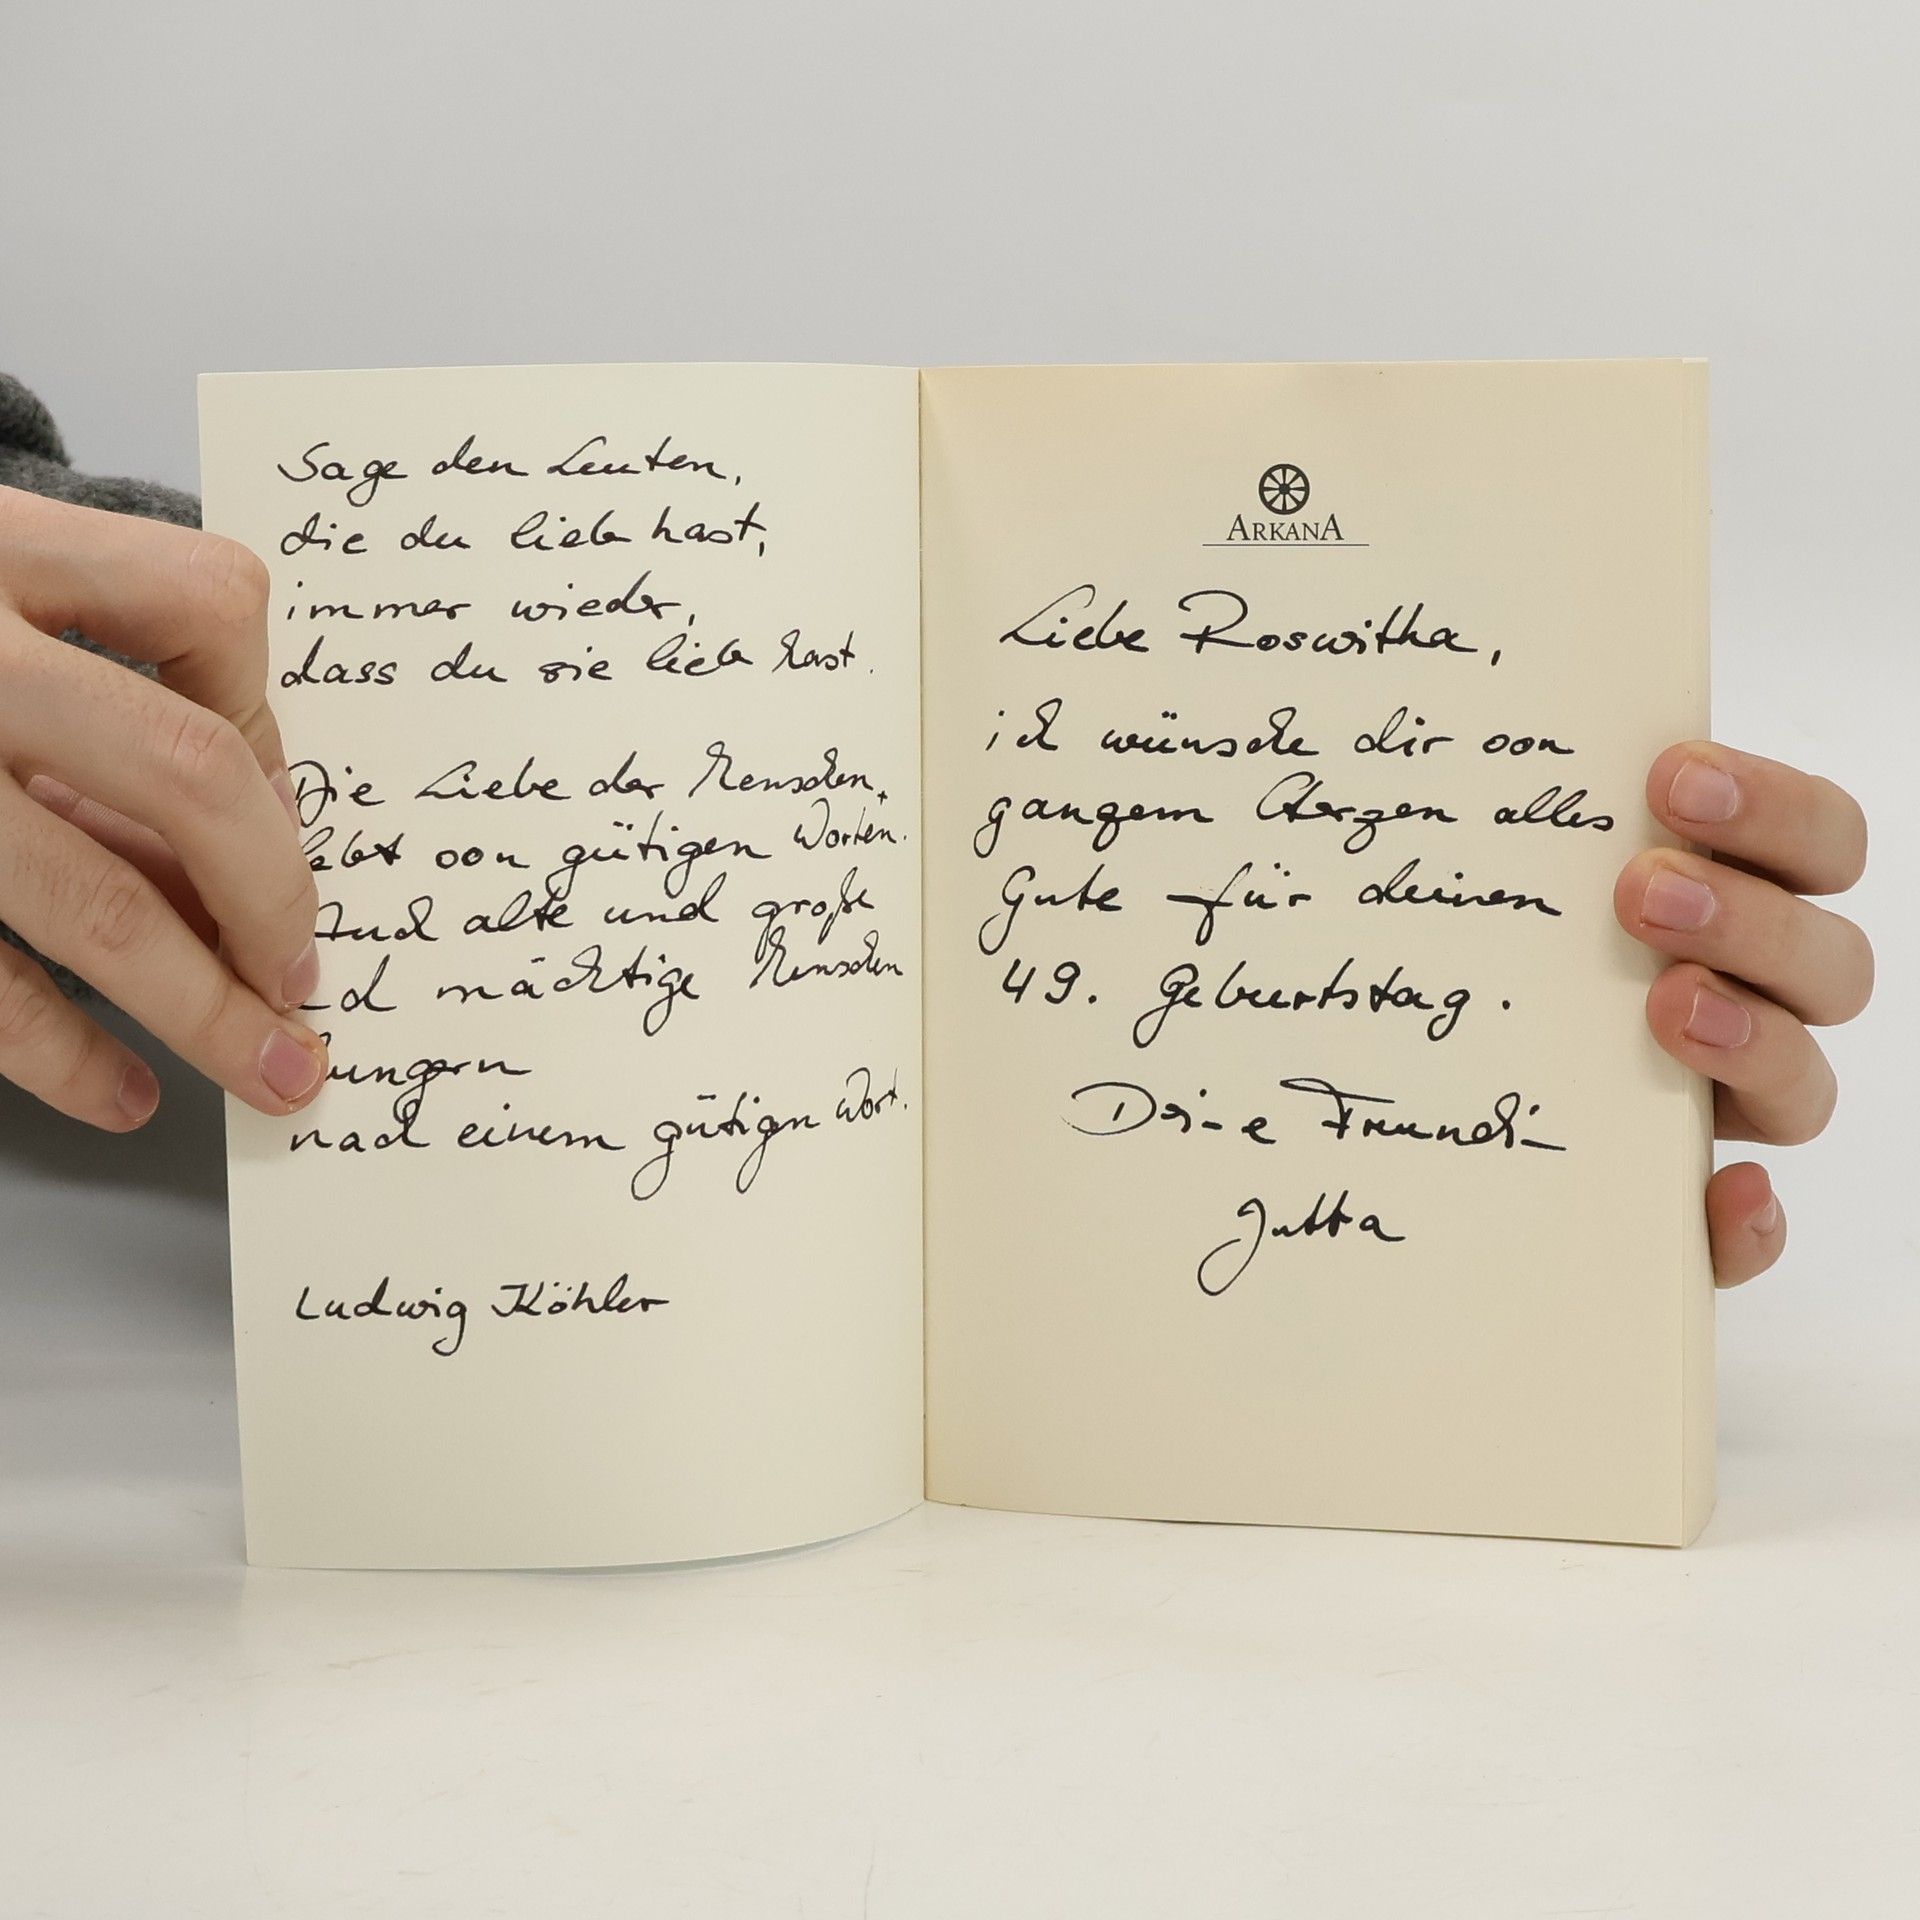 Sage den Leuten,
die du lieb hast,
immer wieder,
dass du sie lieb hast.
Die Liebe der Menschen
lebt von gütigen Worten.
Auch alte und große
und mächtige Menschen
hungern
nach einem gütigen Wort.
Ludwig Köhler
ARKANA
Liebe Roswitha,
ich wünsche dir von
ganzem Herzen alles
Gute für deinen
49. Geburtstag.
Deine Freundin
Jutta